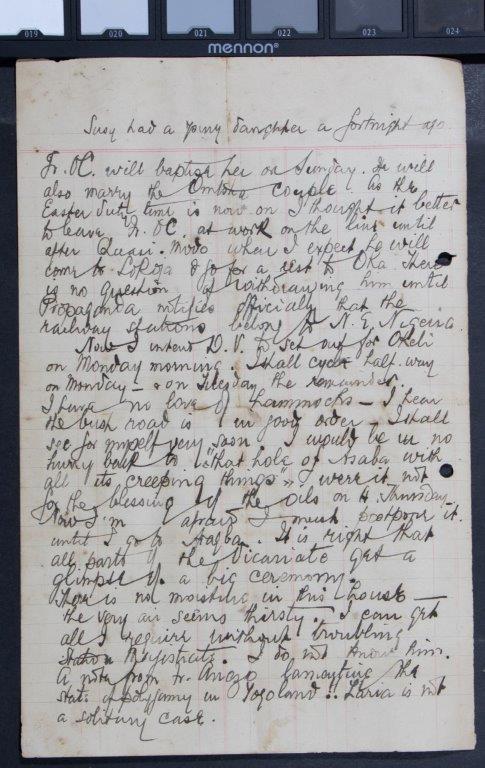 019 020 021 022 023 024
mennon®
Susy had a puny daughter a fortnight ago.
Fr. OC. will baptise her on Sunday. He will
also marry the couple. As the
Easter duty time is now on I thought it better
to leave Fr. OC. at work on the line until
after Quasi-Modo when I expect he will
come to Lokoja & go for a rest to Oka. There
is no question of withdrawing him until
Propaganda notifies officially that the
railway stations belong to N. E. Nigeria.
Now I intend D.V. to set out for Okeli
on Monday morning. I shall cycle half way
on Monday – & on Tuesday the remainder.
I have no love of hammocks – I hear
the bush road is in good order – I shall
see for myself very soon. I would be in no
hurry back to "that hole of Asaba with
all its creeping things", were it not
for the blessing of the oils on H. Thursday.
Now I'm afraid I must postpone it
until I go to Asaba. It is right that
all parts of the Vicariate get a
glimpse of a big ceremony.
There is no moisture in this house –
the very air seems thirsty. I can get
all I require without troubling
Station Magistrate. I do not know him.
A note from Fr. lamenting the
state of polygamy in Togoland!! Larva is not
a solitary case.